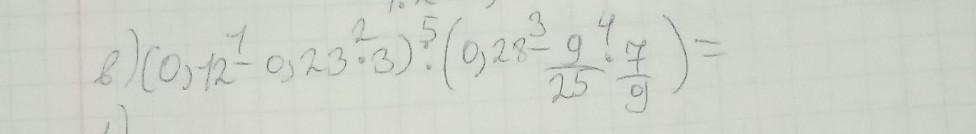 в) (0,12 ¹- 0,23 ²· 3) ⁵: (0,28 ³- 9/25 ⁴· 7/9) =